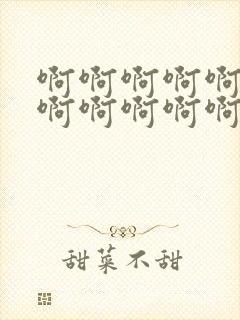 啊啊啊啊啊
啊啊啊啊啊
甜菜不甜